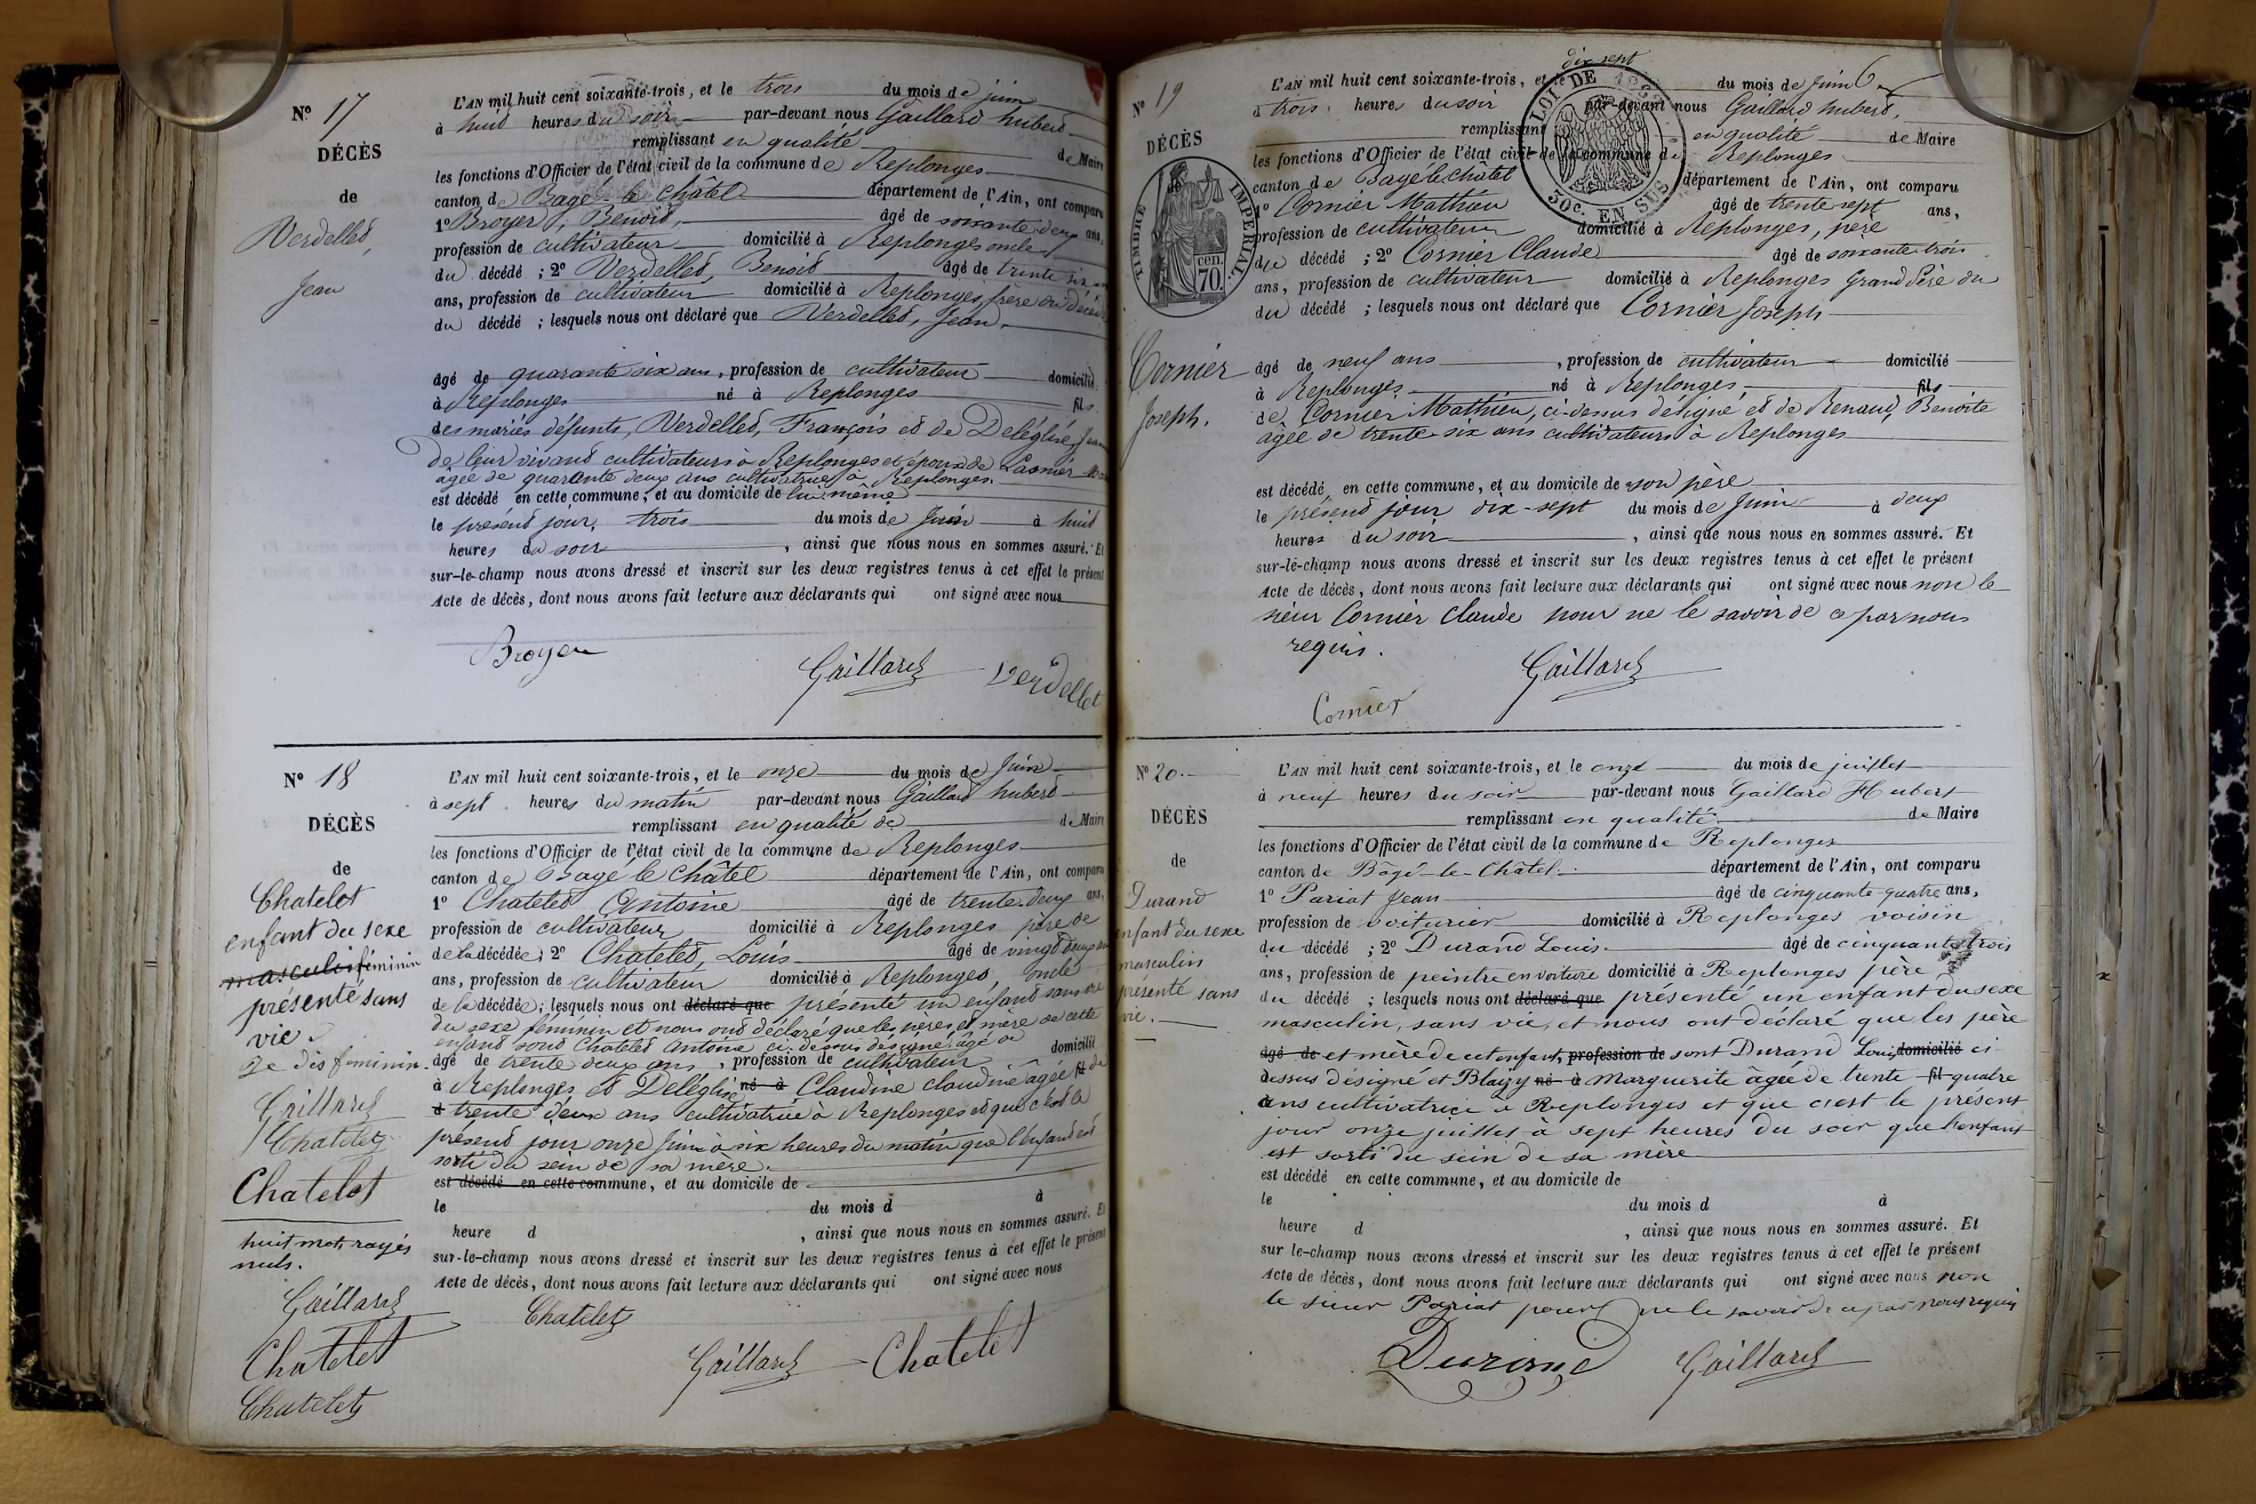 Nº 17
DÉCÈS
de
Verdellet,
Jean
L'AN mil huit cent soixante-trois, et le trois du mois de juin
à huit heures du soir par-devant nous Gaillard hubert
remplissant en qualité de Maire
les fonctions d'Officier de l'état civil de la commune de Replonges
canton de Bagé-le-Châtel département de l'Ain, ont comparu
1º Broyer, Benoit, âgé de soixante deux ans,
profession de cultivateur domicilié à Replonges oncle
du décédé ; 2º Verdellet, Benoit âgé de trente six
ans, profession de cultivateur domicilié à Replonges, frère du décédé
du décédé ; lesquels nous ont déclaré que Verdellet, Jean,
âgé de quarante six ans, profession de cultivateur domicilié
à Replonges né à Replonges fils
des mariés défunts, Verdellet, François et de Deléglise, Jean
de leur vivant cultivateurs à Replonges et époux de
âgée de quarante deux ans cultivatrice à Replonges.
est décédé en cette commune, et au domicile de lui même
le présent jour, trois du mois de Juin à huit
heures du soir, ainsi que nous nous en sommes assuré. Et
sur-le-champ nous avons dressé et inscrit sur les deux registres tenus à cet effet le présent
Acte de décès, dont nous avons fait lecture aux déclarants qui ont signé avec nous
Broyer
Gaillard Verdellet
Nº 18
DÉCÈS
de
Chatelet
enfant du sexe
masculin féminin
présenté sans
vie.
Je dis féminin.
Gaillard
Chatelet
Chatelet
huit mots rayés
nuls.
Gaillard
Chatelet
Chatelet
L'AN mil huit cent soixante-trois, et le onze du mois de Juin
à sept heures du matin par-devant nous Gaillard hubert
remplissant en qualité de de Maire
les fonctions d'Officier de l'état civil de la commune de Replonges
canton de Bagé le Châtel département de l'Ain, ont comparu
1º Chatelet Antoine âgé de trente-deux ans,
profession de cultivateur domicilié à Replonges père de
de la décédée; 2º Chatelet, Louis âgé de vingt deux ans
ans, profession de cultivateur domicilié à Replonges oncle
de la décédée; lesquels nous ont déclaré que présenté un enfant sans vie
du sexe féminin et nous ont déclaré que les pères et mère de cette
enfant sont Chatelet Antoine ci-dessus désigné âgé de
âgé de trente deux ans, profession de cultivateur domicilié
à Replonges et Deléglise né à Claudine claudine âgée fil de
à trente deux ans cultivatrice à Replonges et que c'est le
présent jour onze Juin à six heures du matin que l'enfant est
sorti du sein de sa mère.
est décédé en cette commune, et au domicile de
le du mois d à
heure d , ainsi que nous nous en sommes assuré. Et
sur-le-champ nous avons dressé et inscrit sur les deux registres tenus à cet effet le présent
Acte de décès, dont nous avons fait lecture aux déclarants qui ont signé avec nous
Chatelet
Gaillard Chatelet
Nº 19
DÉCÈS
TIMBRE IMPÉRIAL.
cen.
70.
Cornier
Joseph.
LOI DE
30c. EN SUS
dix sept
L'AN mil huit cent soixante-trois, et le du mois de Juin
à trois heures du soir par-devant nous Gaillard hubert,
remplissant en qualité de Maire
les fonctions d'Officier de l'état civil de la commune de Replonges
canton de Bagé le Châtel département de l'Ain, ont comparu
1º Cornier Mathieu âgé de trente sept ans,
profession de cultivateur domicilié à Replonges, père
du décédé ; 2º Cornier Claude âgé de soixante trois
ans, profession de cultivateur domicilié à Replonges Grand Père du
du décédé ; lesquels nous ont déclaré que Cornier Joseph
âgé de neuf ans, profession de cultivateur domicilié
à Replonges né à Replonges fils
de Cornier Mathieu, ci-dessus désigné et de Renaud, Benoite
âgée de trente-six ans cultivateurs à Replonges
est décédé en cette commune, et au domicile de son père
le présent jour dix-sept du mois de Juin à deux
heures du soir, ainsi que nous nous en sommes assuré. Et
sur-le-champ nous avons dressé et inscrit sur les deux registres tenus à cet effet le présent
Acte de décès, dont nous avons fait lecture aux déclarants qui ont signé avec nous non le
sieur Cornier Claude pour ne le savoir de ce par nous
requis.
Gaillard
Cornier
Nº 20.
DÉCÈS
de
Durand
enfant du sexe
masculin
présenté sans
vie.
L'AN mil huit cent soixante-trois, et le onze du mois de juillet
à neuf heures du soir par-devant nous Gaillard Hubert
remplissant en qualité de Maire
les fonctions d'Officier de l'état civil de la commune de Replonges
canton de Bâgé-le-Châtel. département de l'Ain, ont comparu
1º Pariat Jean âgé de cinquante-quatre ans,
profession de voiturier domicilié à Replonges voisin
du décédé ; 2º Durand Louis. âgé de cinquante trois
ans, profession de peintre en voiture domicilié à Replonges père
du décédé ; lesquels nous ont déclaré que présenté un enfant du sexe
masculin, sans vie, et nous ont déclaré que les père
âgé de et mère de cet enfant, profession de sont Durand Louis domicilié ci-
dessus désigné et Blaizy né à Marguerite âgée de trente fil quatre
ans cultivatrice à Replonges et que c'est le présent
jour onze juillet à sept heures du soir que l'enfant
est sorti du sein de sa mère
est décédé en cette commune, et au domicile de
le du mois d à
heure d , ainsi que nous nous en sommes assuré. Et
sur le-champ nous avons dressé et inscrit sur les deux registres tenus à cet effet le présent
Acte de décès, dont nous avons fait lecture aux déclarants qui ont signé avec nous non
le sieur Pariat pour ne le savoir de ce par nous requis
Durand Gaillard